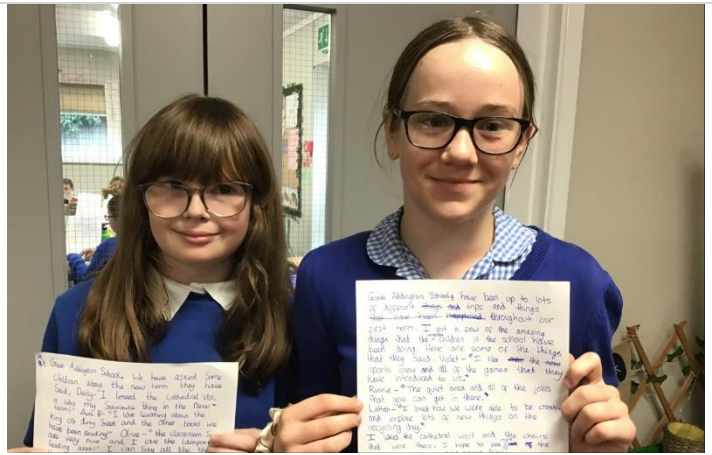 At Great Addington School, We have asked Some
children about the new term they have
Said, Daisy-"I loved the Cathedral Visit
is was my favourite thing in the New
term!" "I love learning about the
king of
have been reading!" Olive - "the classroom
are very nice and I love the
reading area! I can say all the
Great Addington School have been up to lots
of different things and trips and things
that have been happened throughout our
first term. I got a few of the amazing
things that the children in the school have
been doing. Here are some of the things
that they said. Violet - "I like the new
sports crew and all of the games that they
have introduced to us."
Ronnie - "The quiet area and all of the jobs
that you can get in there."
"I loved how we were able to be creative
and explore lots of new things on the
recycling day."
I loved the cathedral visit and the choirs
that were there. I hope to the